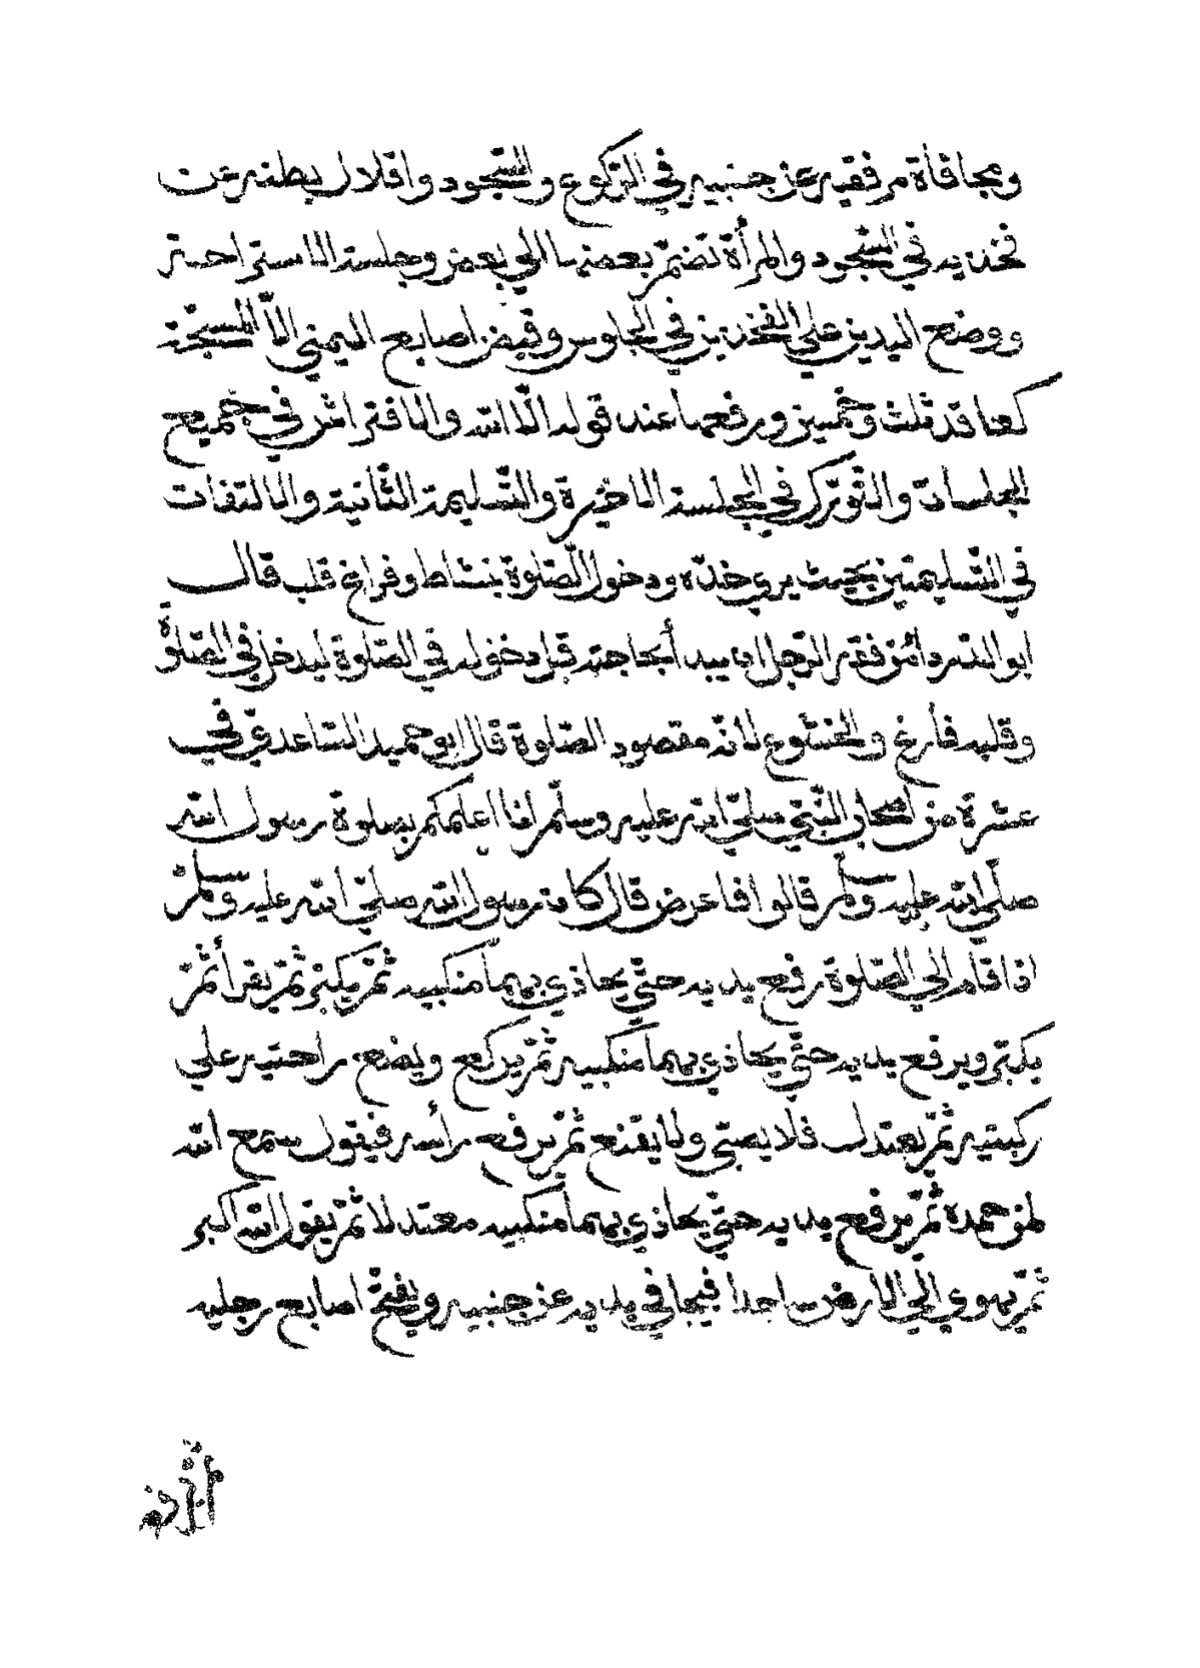 ومجافاة مرفقيه عن جنبيه في الركوع والسجود واقلال بطنه عن
فخذيه في السجود والمرأة تضم بعضها الي بعض وجلسة الاستراحة
ووضع اليدين علي الفخذين في الجلوس وقبض اصابع اليمني الّا المسبّحة
كعاقد ثلث وخمسين ورفعها عند قوله الّا الله والافتراش في جميع
الجلسات والتورّك في الجلسة الاخيرة والتسليمة الثانية والالتفات
في التسليمتين بحيث يري خدّه ودخول الصّلوة بنشاط وفراغ قلب قال
ابو الدرداء من فقه الرجل ان يبدأ بحاجته قبل دخوله في الصّلوة ليدخل في الصّلوة
وقلبه فارغ والخشوع لانه مقصود الصّلوة قال ابو حميد السّاعديّ في
عشرة من اصحاب النّبيّ صليّ الله عليه وسلّم انا اعلمكم بصلوة رسول الله
صلّي الله عليه وسلّم قالوا فاعرض قال كان رسول الله صليّ الله عليه وسلّم
اذا قام الي الصّلوة رفع يديه حتّي يحاذي بهما منكبيه ثمّ يكبّر ثمّ يقرأ ثمّ
يكبّر ويرفع يديه حتّي يحاذي بهما منكبيه ثمّ يركع ويضع راحتيه علي
ركبتيه ثمّ يعتدل فلا يصبّي ولا يقنع ثمّ يرفع رأسه فيقول سمع الله
لمن حمده ثمّ يرفع يديه حتّي يحاذي بهما منكبيه معتدلا ثمّ يقول الله اكبر
ثمّ يهوي الي الارض ساجدا فيجافي يديه عن جنبيه ويفتخ اصابع رجليه